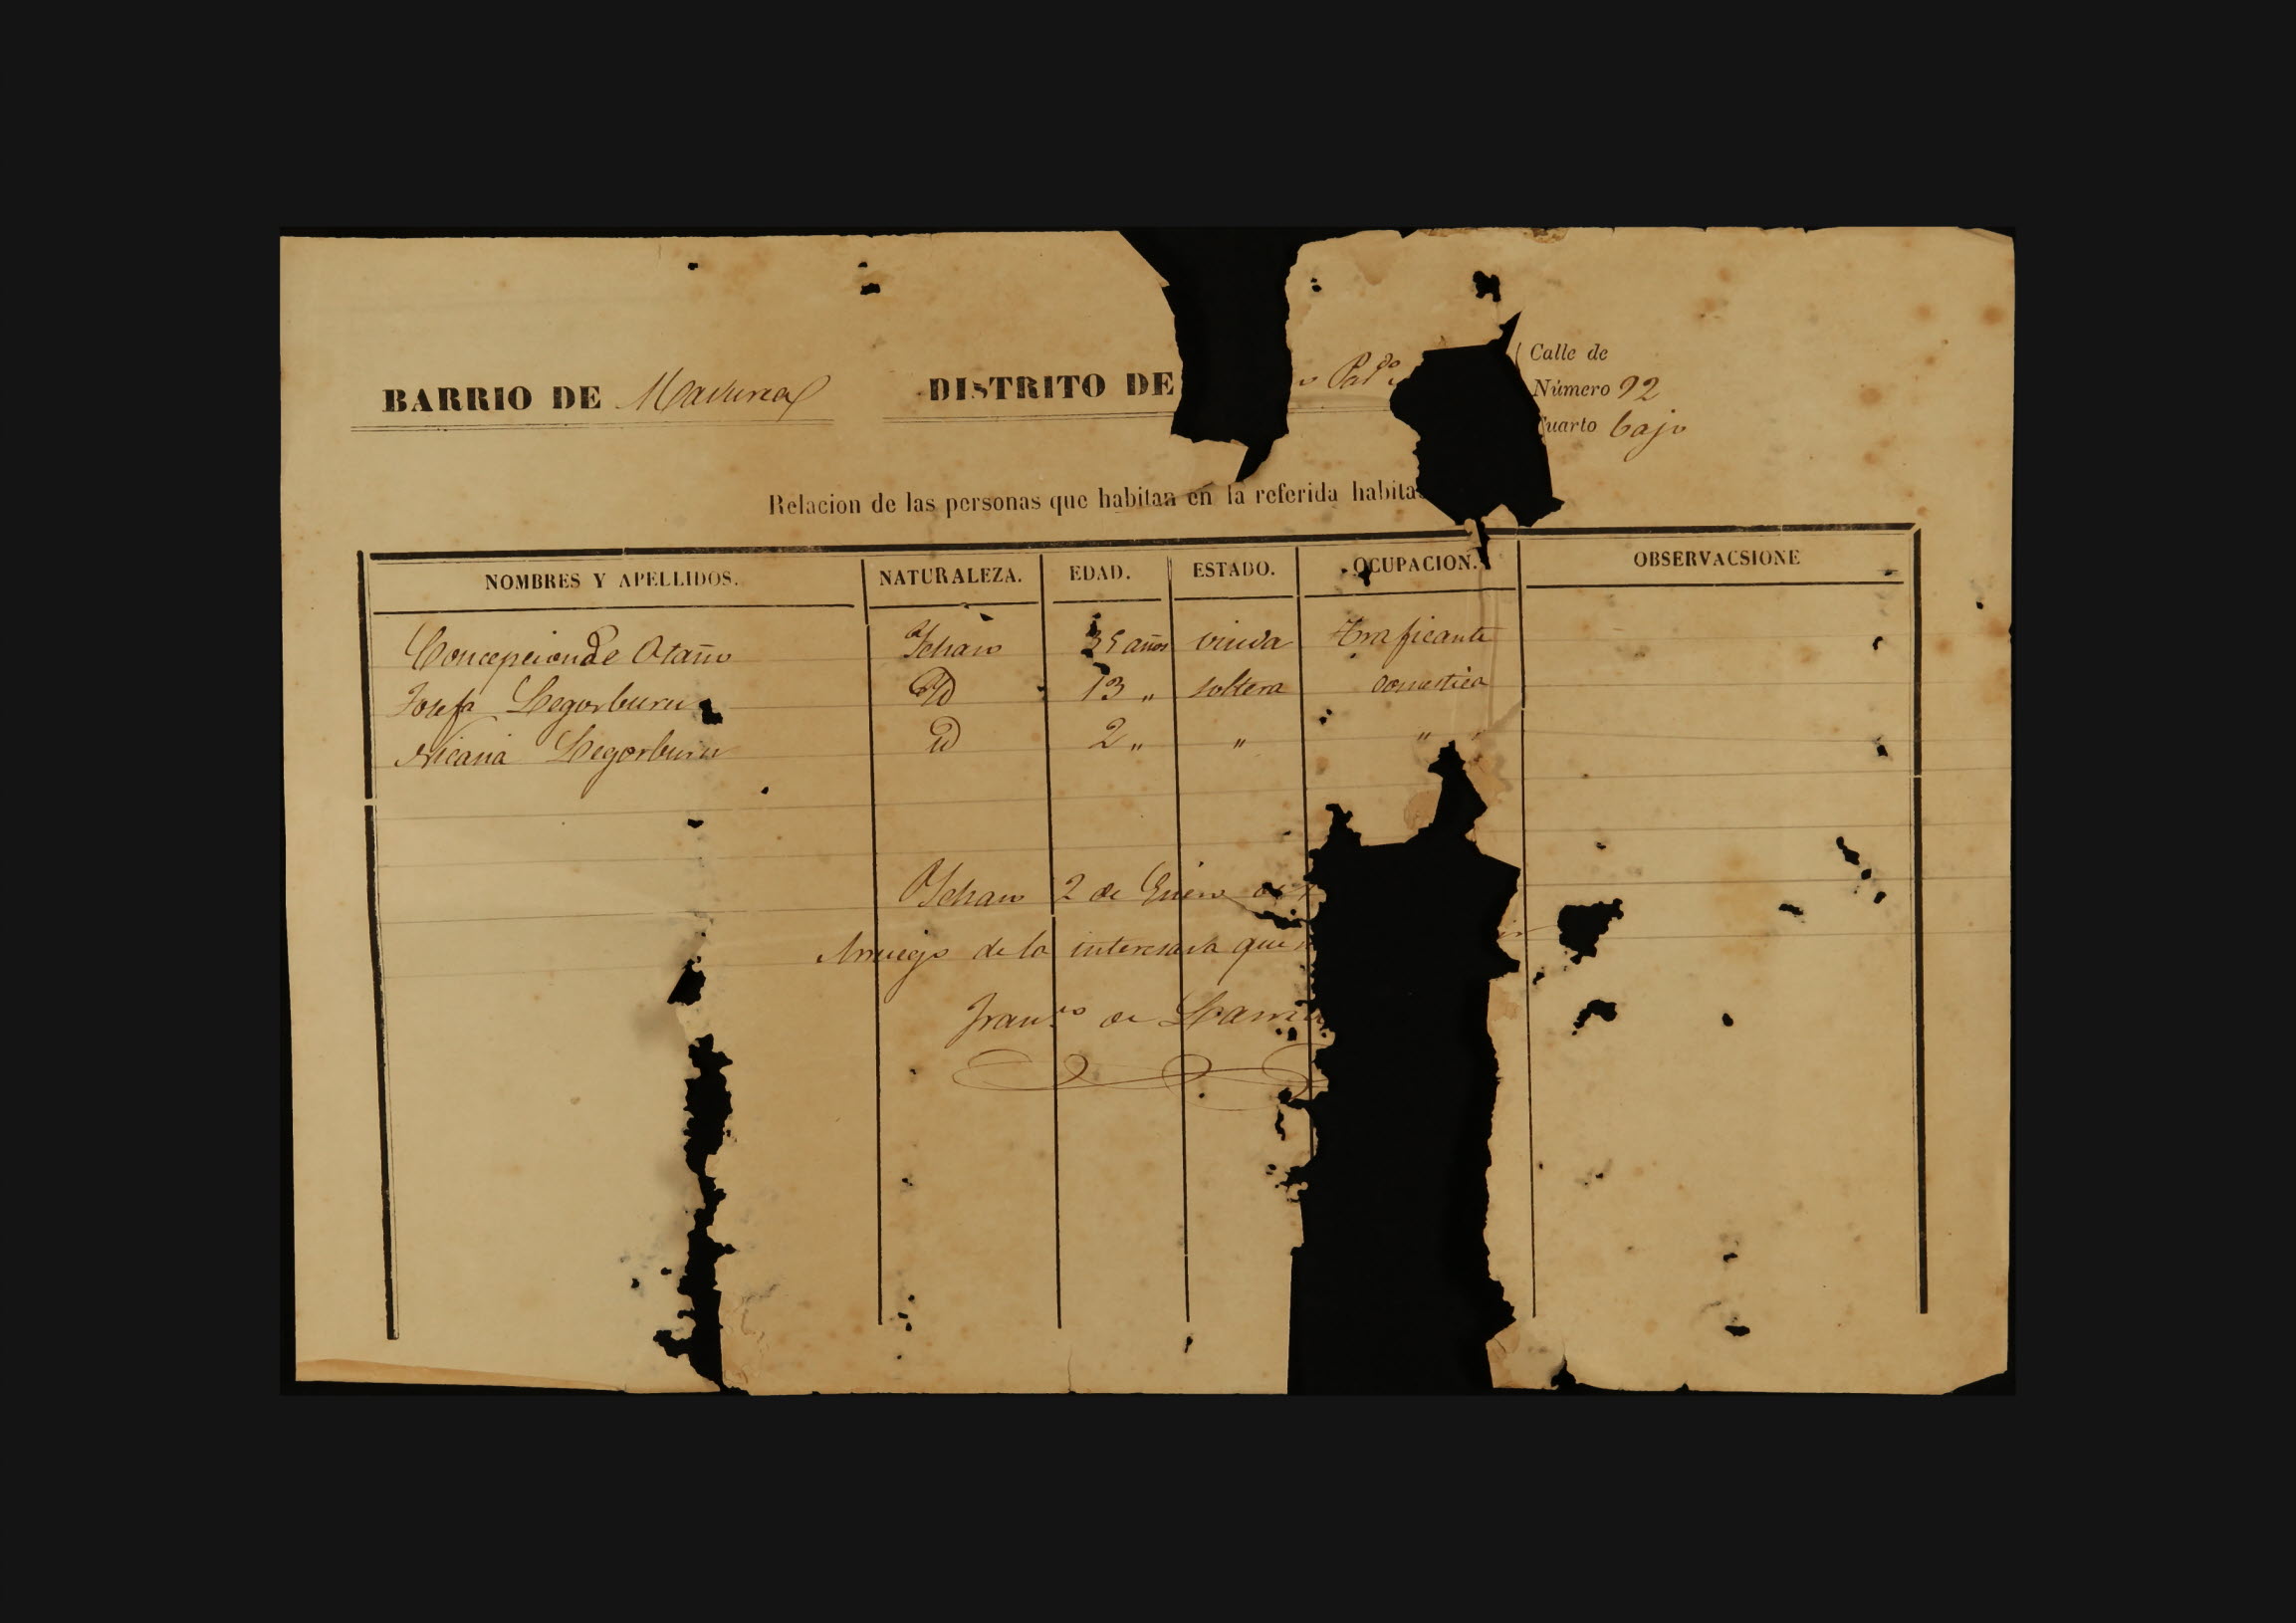 BARRIO DE Madureal DISTRITO DE
Calle de
Número 92
Cuarto bajo
Relacion de las personas que habitan en la referida habita
NOMBRES Y APELLIDOS. NATURALEZA. EDAD. ESTADO. OCUPACION. OBSERVACSIONE
Concepcion de Otaño Ychaso 35 años viuda Traficante
Josefa Legorburu Yd 13 " soltera domestica
Nicasia Legorburu id 2 " " "
Ychaso 2 de Enero de
Arruego de la interesada que
Franco de Larra